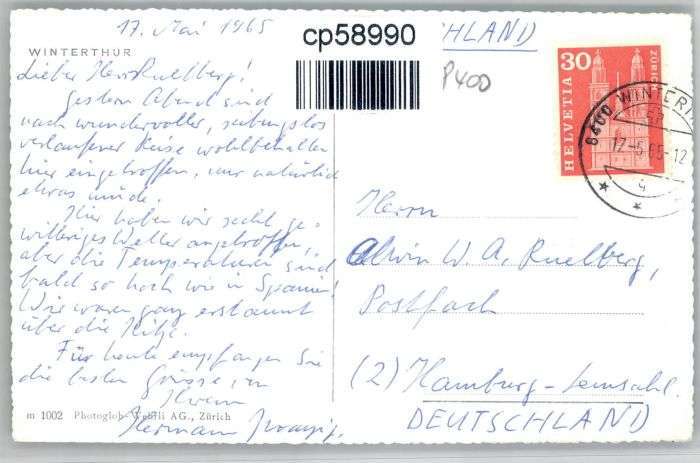 17. Mai 1965
WINTERTHUR
Lieber Herr Ruelberg!
Gestern Abend sind
nach wundervoller, reibungslos
verlaufener Reise wohlbehalten
hier eingetroffen, nur natürlich
etwas müde.
Hier haben wir recht ge-
wittriges Wetter angetroffen,
aber die Temperaturen sind
bald so hoch wie in Spanien!
Wir waren ganz erstaunt
über die Hitze.
Für heute empfangen Sie
die besten Grüsse, von
Ihrem
Hermann
m 1002 Photoglob-Wehrli AG., Zürich
cp58990
HLAND
P400
30
HELVETIA
ZÜRICH
8400 WINTERTH
17-5.65-12
Herrn
Alwin W. A. Ruelberg,
Postfach
(2) Hamburg-Lemsahl.
DEUTSCHLAND